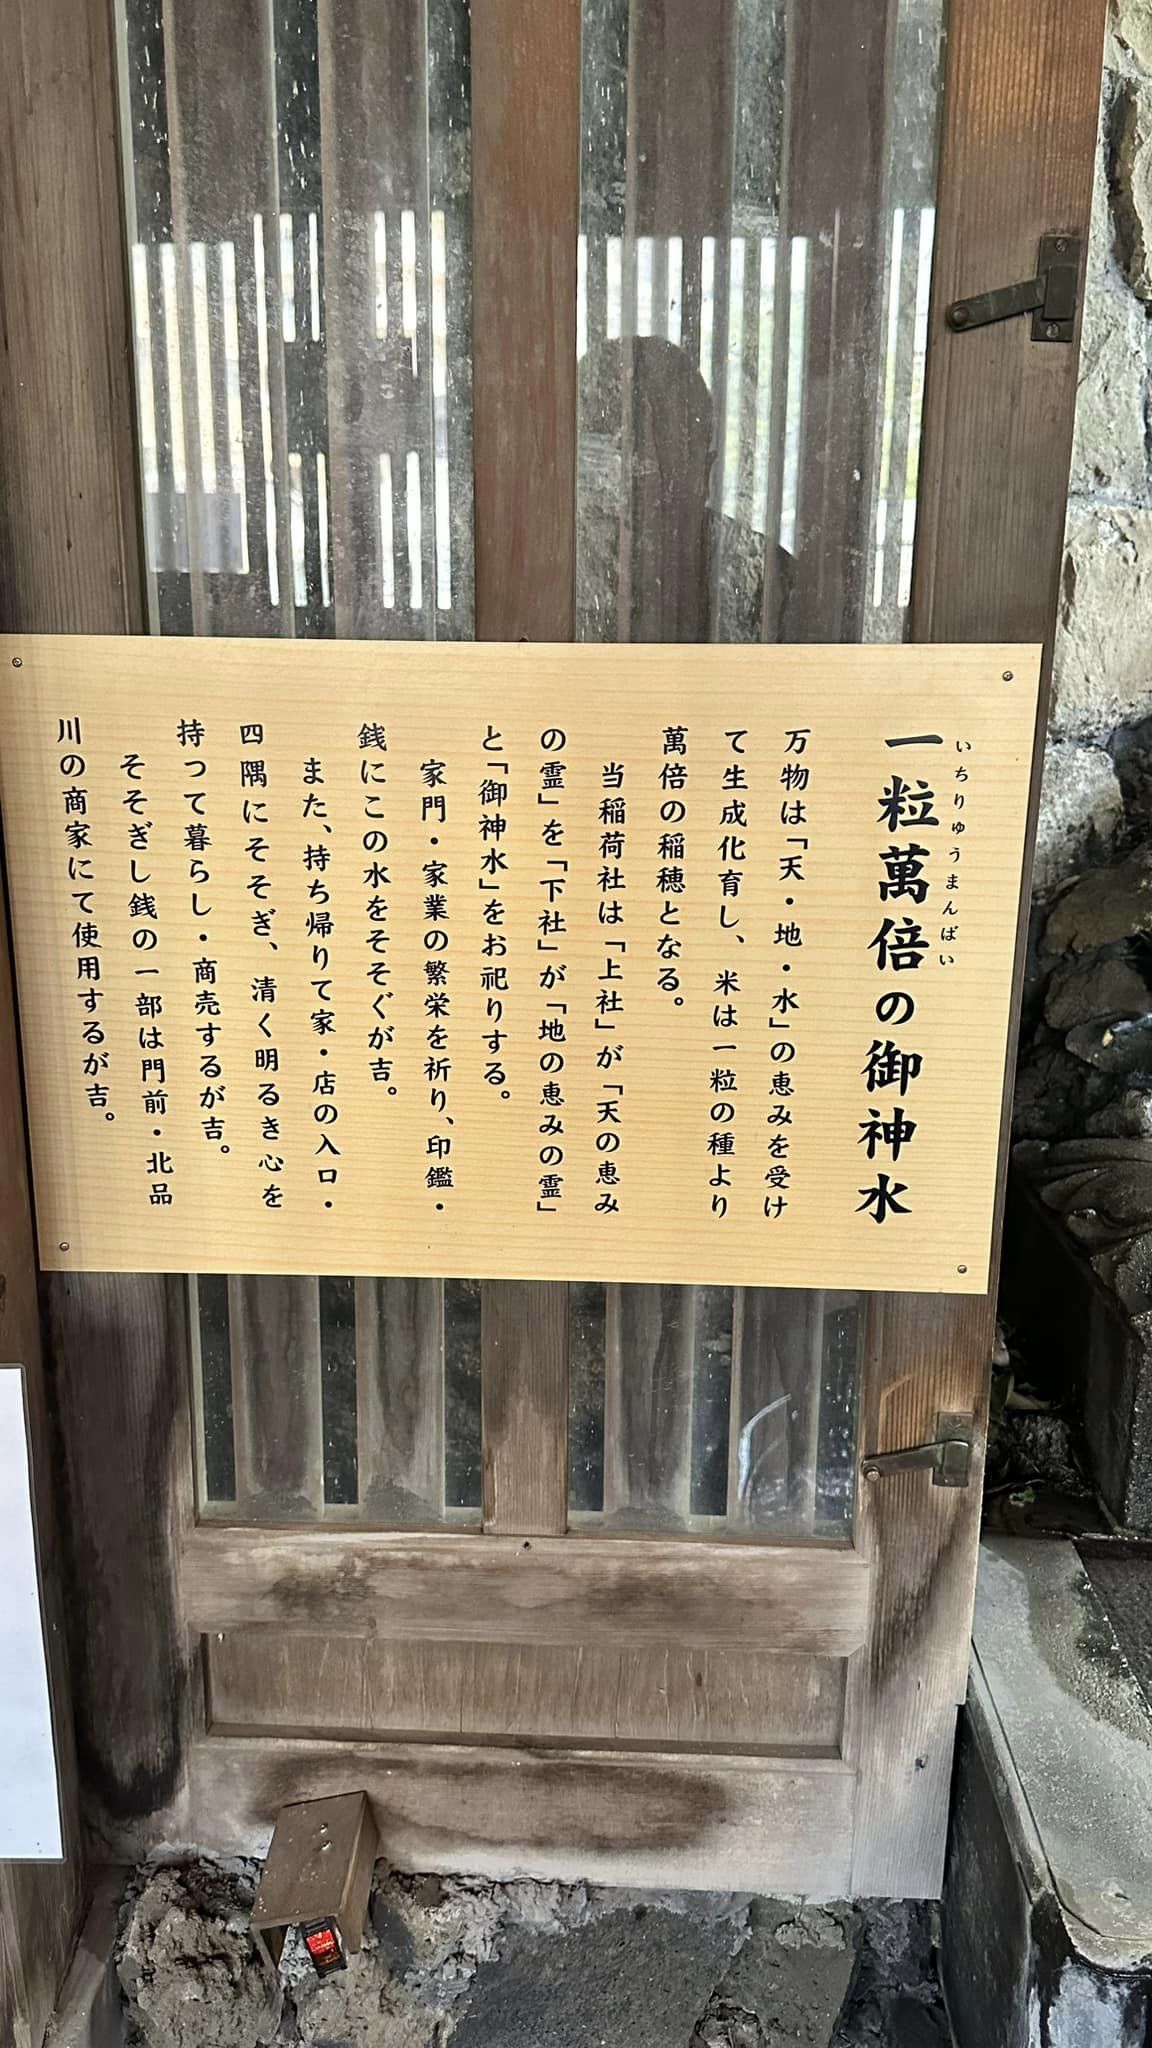 一粒萬倍の御神水
いちりゅうまんばい
万物は「天・地・水」の恵みを受け
て生成化育し、米は一粒の種より
萬倍の稲穂となる。
当稲荷社は「上社」が「天の恵み
の霊」を「下社」が「地の恵みの霊」
と「御神水」をお祀りする。
家門・家業の繁栄を祈り、印鑑・
銭にこの水をそそぐが吉。
また、持ち帰りて家・店の入口・
四隅にそそぎ、清く明るき心を
持つて暮らし・商売するが吉。
そそぎし銭の一部は門前・北品
川の商家にて使用するが吉。